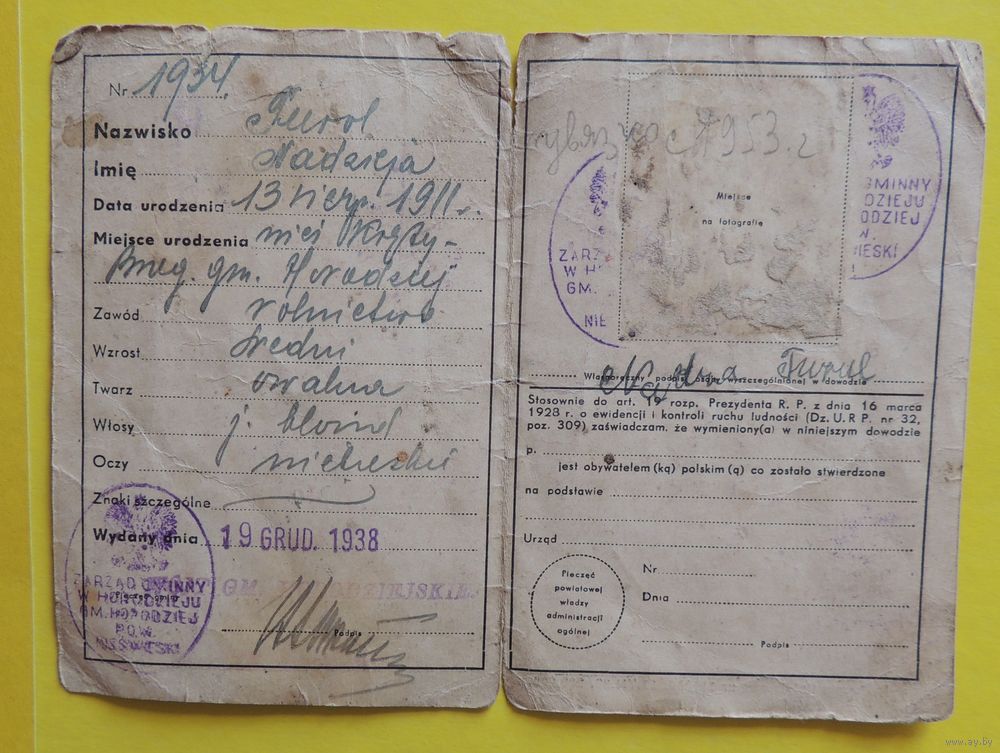 Nr 1934.
Nazwisko
Imię Nadzieja
Data urodzenia 13 sierp. 1911 r.
Miejsce urodzenia
gm. Horodziej
Zawód rolnictwo
Wzrost średni
Twarz owalna
Włosy j. blond
Oczy niebieskie
Znaki szczególne
Wydany dnia 19 GRUD. 1938
ZARZĄD GMINNY
W HORODZIEJU
GM. HORODZIEJ
POW.
NIEŚWIESKI
Podpis
с 1953 г
Miejsce
na fotografię
ZARZ
W H
GM.
NIE
GMINNY
DZIEJU
ODZIEJ
W.
IESKI
Własnoręczny podpis osoby wyszczególnionej w dowodzie
Stosownie do art. 19 rozp. Prezydenta R. P. z dnia 16 marca
1928 r. o ewidencji i kontroli ruchu ludności (Dz. U. R P. nr 32,
poz. 309) zaświadczam, że wymieniony(a) w niniejszym dowodzie
p.
jest obywatelem (ką) polskim (ą) co zostało stwierdzone
na podstawie
Urząd
Pieczęć
powiatowej
władzy
administracji
ogólnej
Nr
Dnia
Podpis
www.ay.by